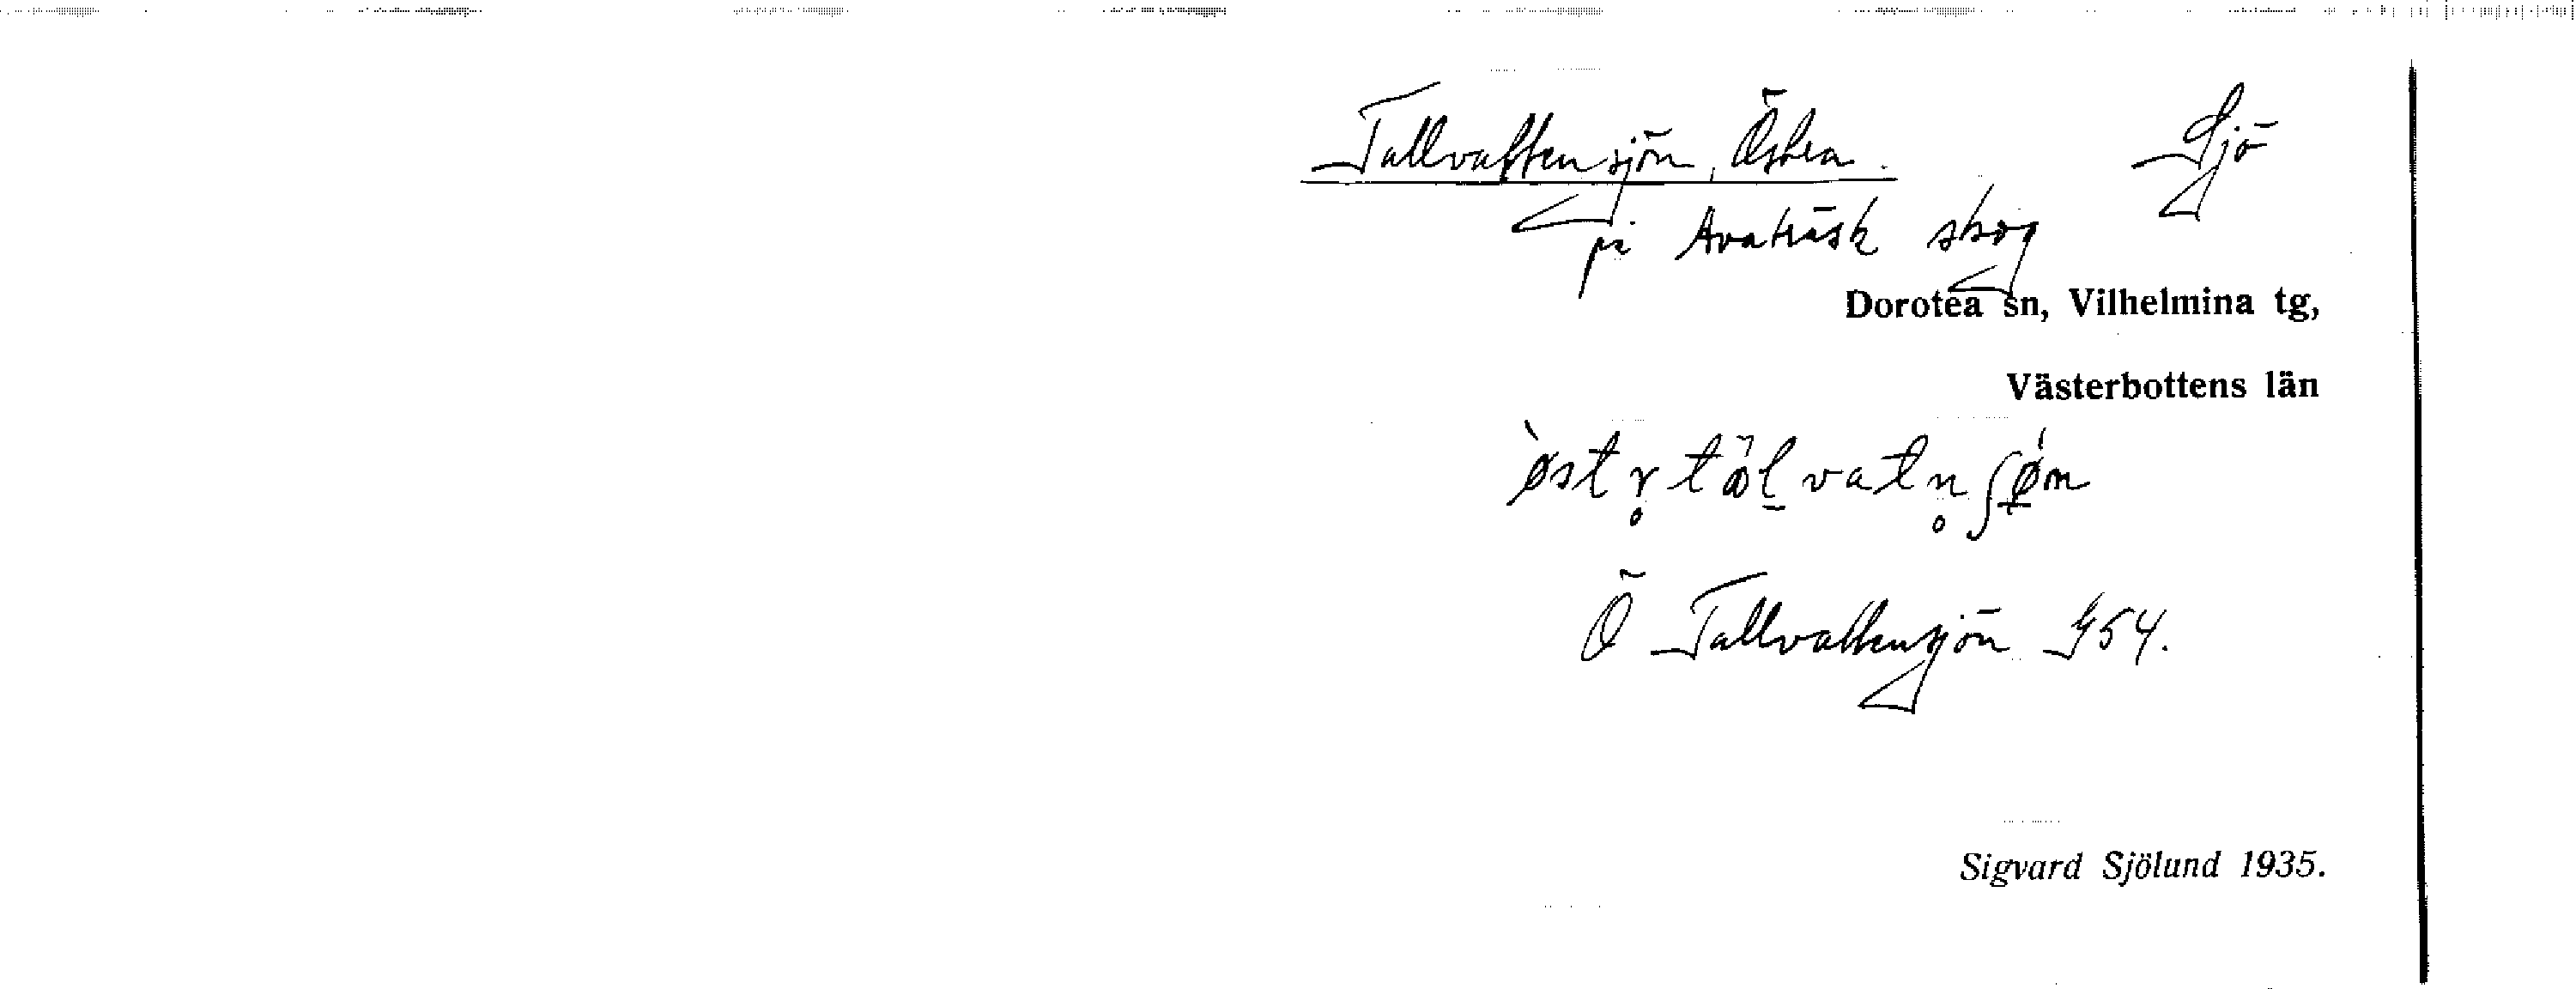 Tallvattensjön, Östra. Sjö
på Avaträsk skog
Dorotea sn, Vilhelmina tg,
Västerbottens län
Ö Tallvattensjön G54.
Sigvard Sjölund 1935.